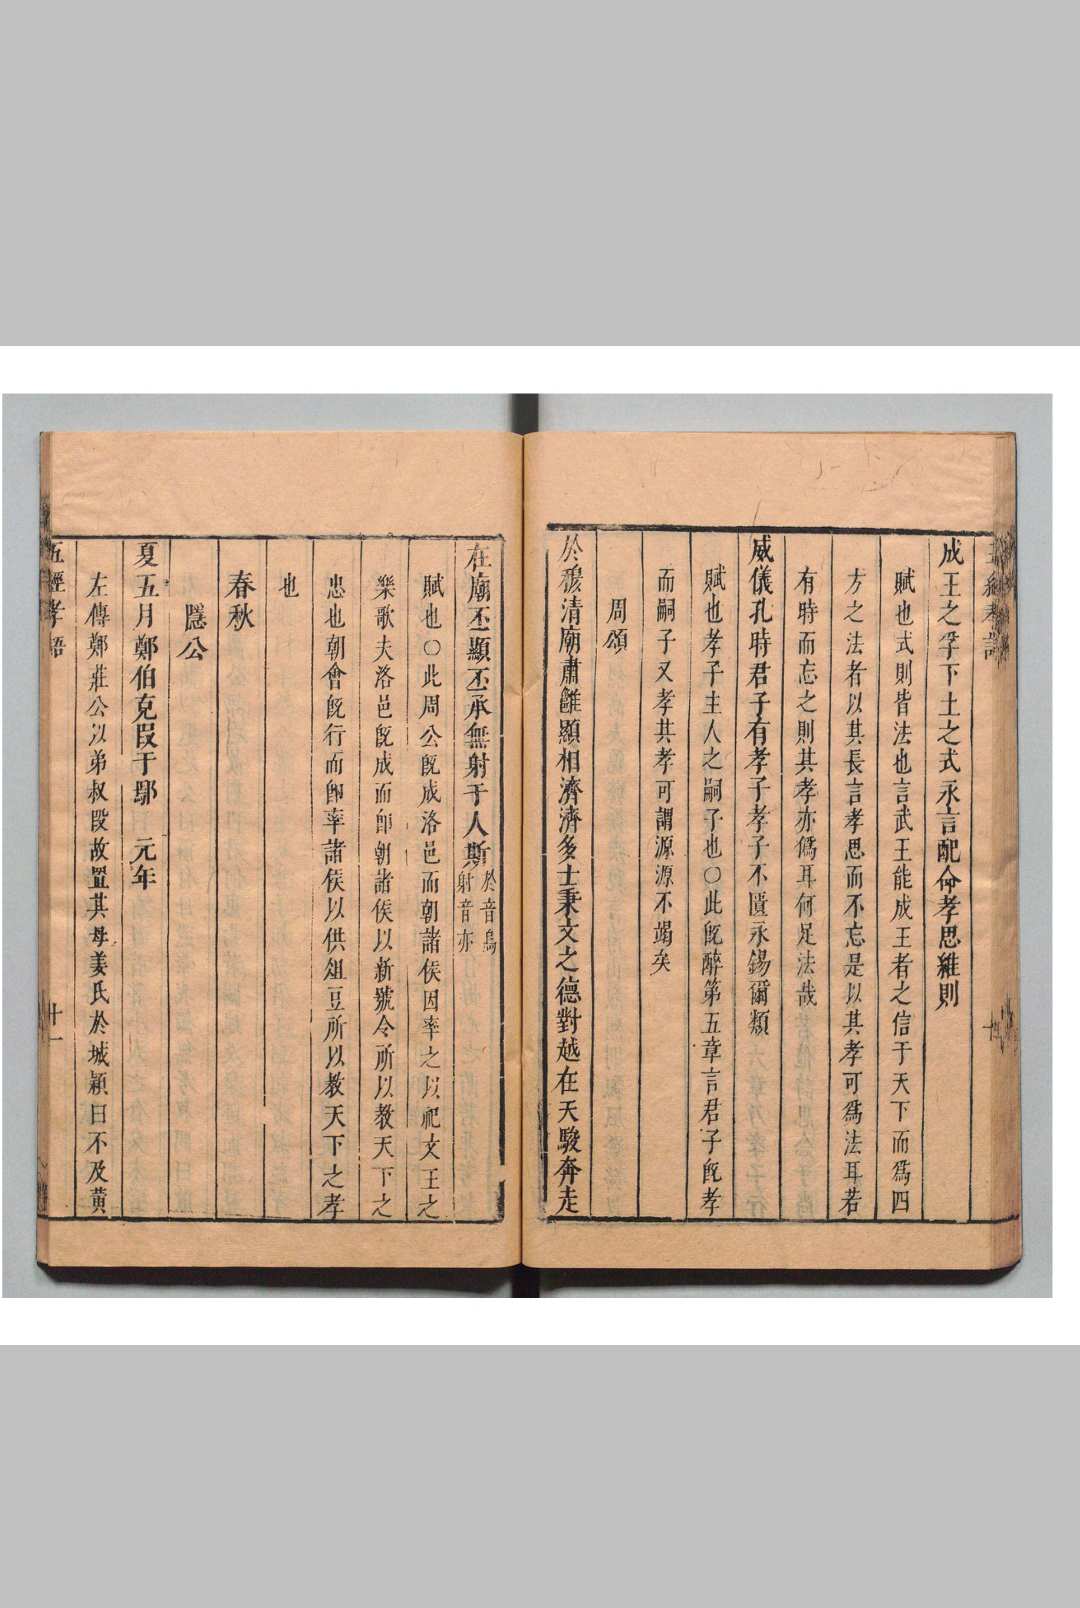 五經孝語
十
成王之孚下土之式永言配命孝思維則
賦也式則皆法也言武王能成王者之信于天下而爲四
方之法者以其長言孝思而不忘是以其孝可爲法耳若
有時而忘之則其孝亦僞耳何足法哉
威儀孔時君子有孝子孝子不匱永錫爾類
賦也孝子主人之嗣子也○此旣醉第五章言君子旣孝
而嗣子又孝其孝可謂源源不竭矣
周頌
於穆清廟肅雝顯相濟濟多士秉文之德對越在天駿奔走
在廟丕顯丕承無射于人斯於音烏射音亦
賦也○此周公旣成洛邑而朝諸侯因率之以祀文王之
樂歌夫洛邑旣成而卽朝諸侯以新號令所以教天下之
忠也朝會旣行而卽率諸侯以供俎豆所以教天下之孝
也
春秋
隱公
夏五月鄭伯克段于鄢 元年
左傳鄭莊公以弟叔段故置其母姜氏於城潁曰不及黄
五經孝語
十一